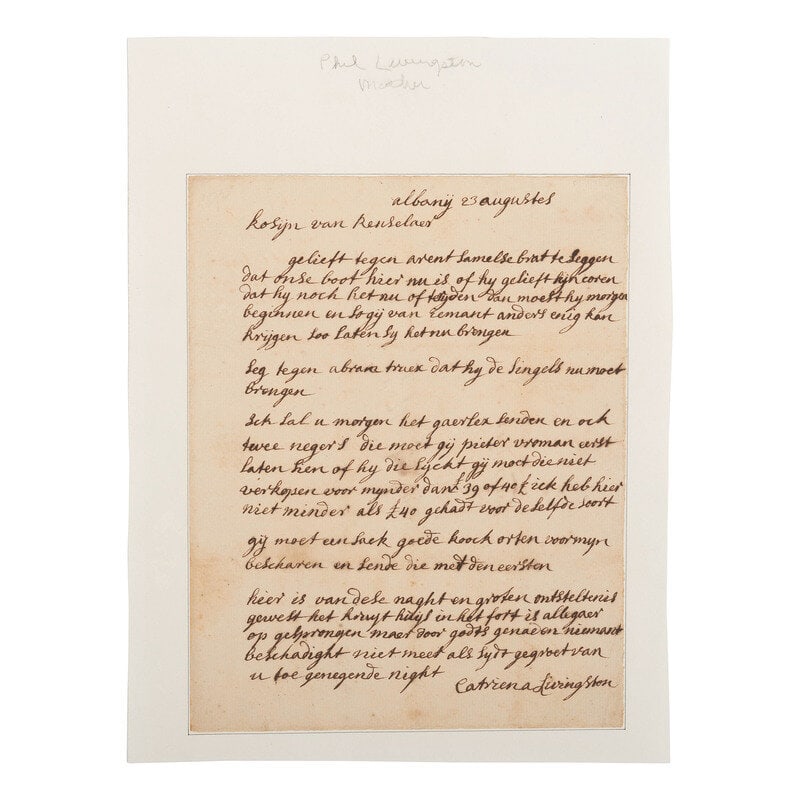 Phil Livingston
Mother
albanij 23 augustes
kosijn van Renselaer
gelieft tegen arent samelse brat te seggen
dat onse boot hier nu is of hy gelieft sijn coren
dat hy noch het nu of tsyden dan moest hy morgen
beginnen en so gij van iemant anders enig kan
krijgen soo laten sy het nu brengen
seg tegen abram truex dat hy de singels nu moet
brengen
Ick sal u morgen het gaerlex senden en ock
twee negers die moet gij pieter vroman eerst
laten sien of hy die lyckt gij mot die niet
verkopen voor mynder dan £ 39 of 40 £ ick heb hier
niet minder als £40 gehadt voor deselfde soort
gij moet een sack goede koock orten voor myn
bescharen en sende die met den eersten
hier is van dese naght en groten ontsteltenis
gewest het kruyt huys in het fort is allegaer
op gesprongen maer door godts genaden niemant
beschadight niet meer als sydt gegroet van
u toe genegende night
Catriena Livingston